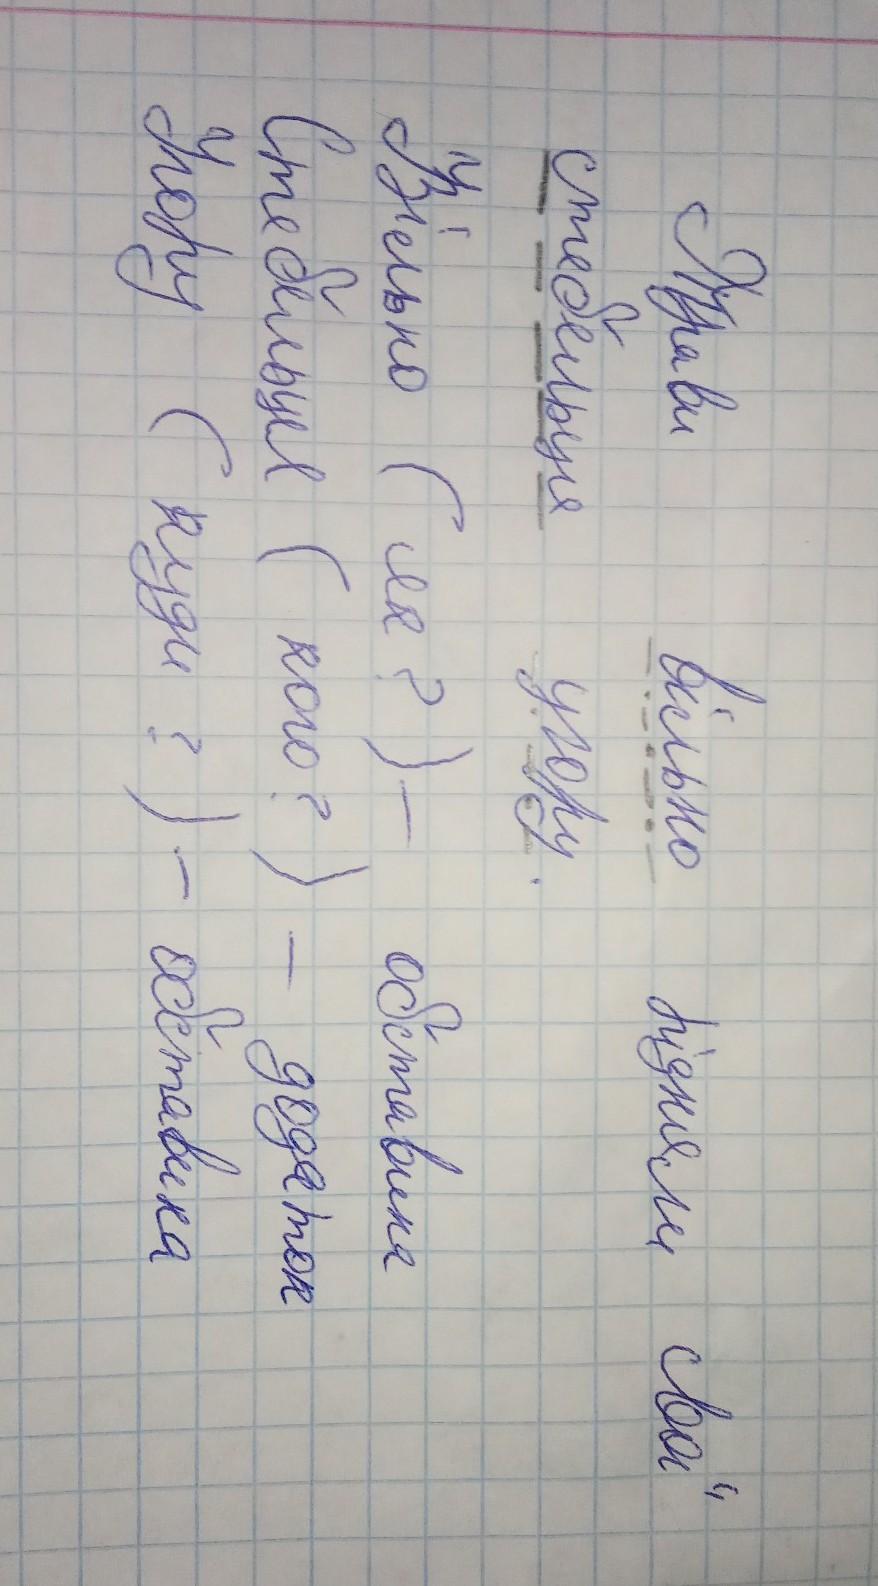 Трави вільно підняли свої
стебельця угору.
Вільно (як?) – обставина
Стебельця (кого?) – додаток
Угору (куди?) – обставина